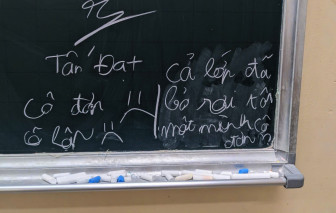 Tấn Đạt
cô đơn :(
cả lớp đã
bỏ rơi tôi
một mình cô
đơn